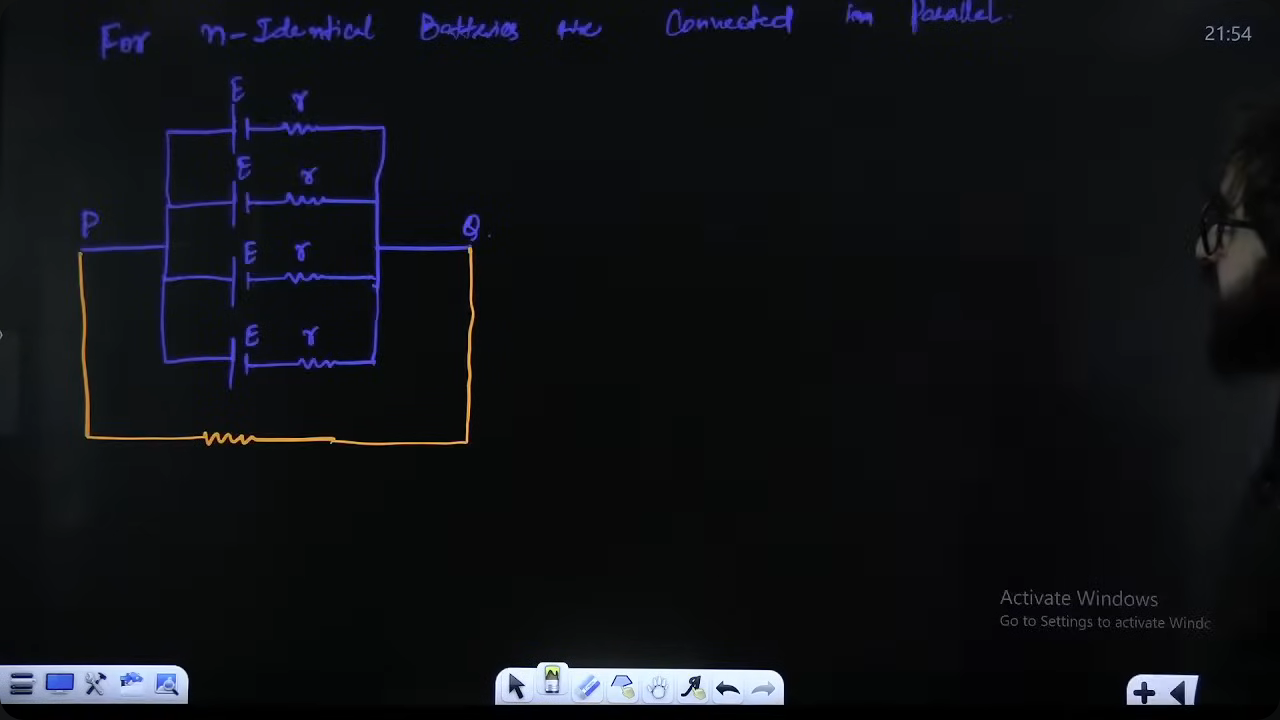 For n-Identical Batteries are Connected in Parallel.
21:54
E r
E r
P Q.
E r
E r
Activate Windows
Go to Settings to activate Windc